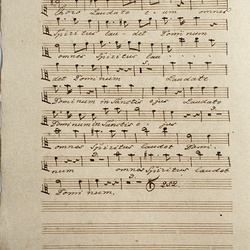 thors Laudate eum omnes
Spiritus lau det Dominum
omnes Spiritus lau
det Dominum Laudate
Dominum in Sanctis ejus Laudate
Dominum in Sanctis ejus
omnes Spiritus laudet Domi
num omnes Spiritus laudet
Dominum. 252.